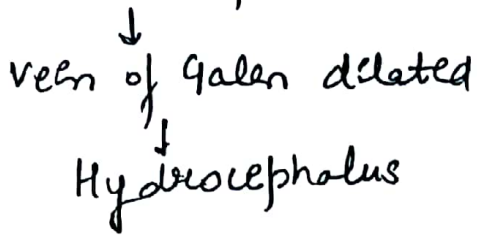 ↓
veen of Galen dilated
↓
Hydrocephalus